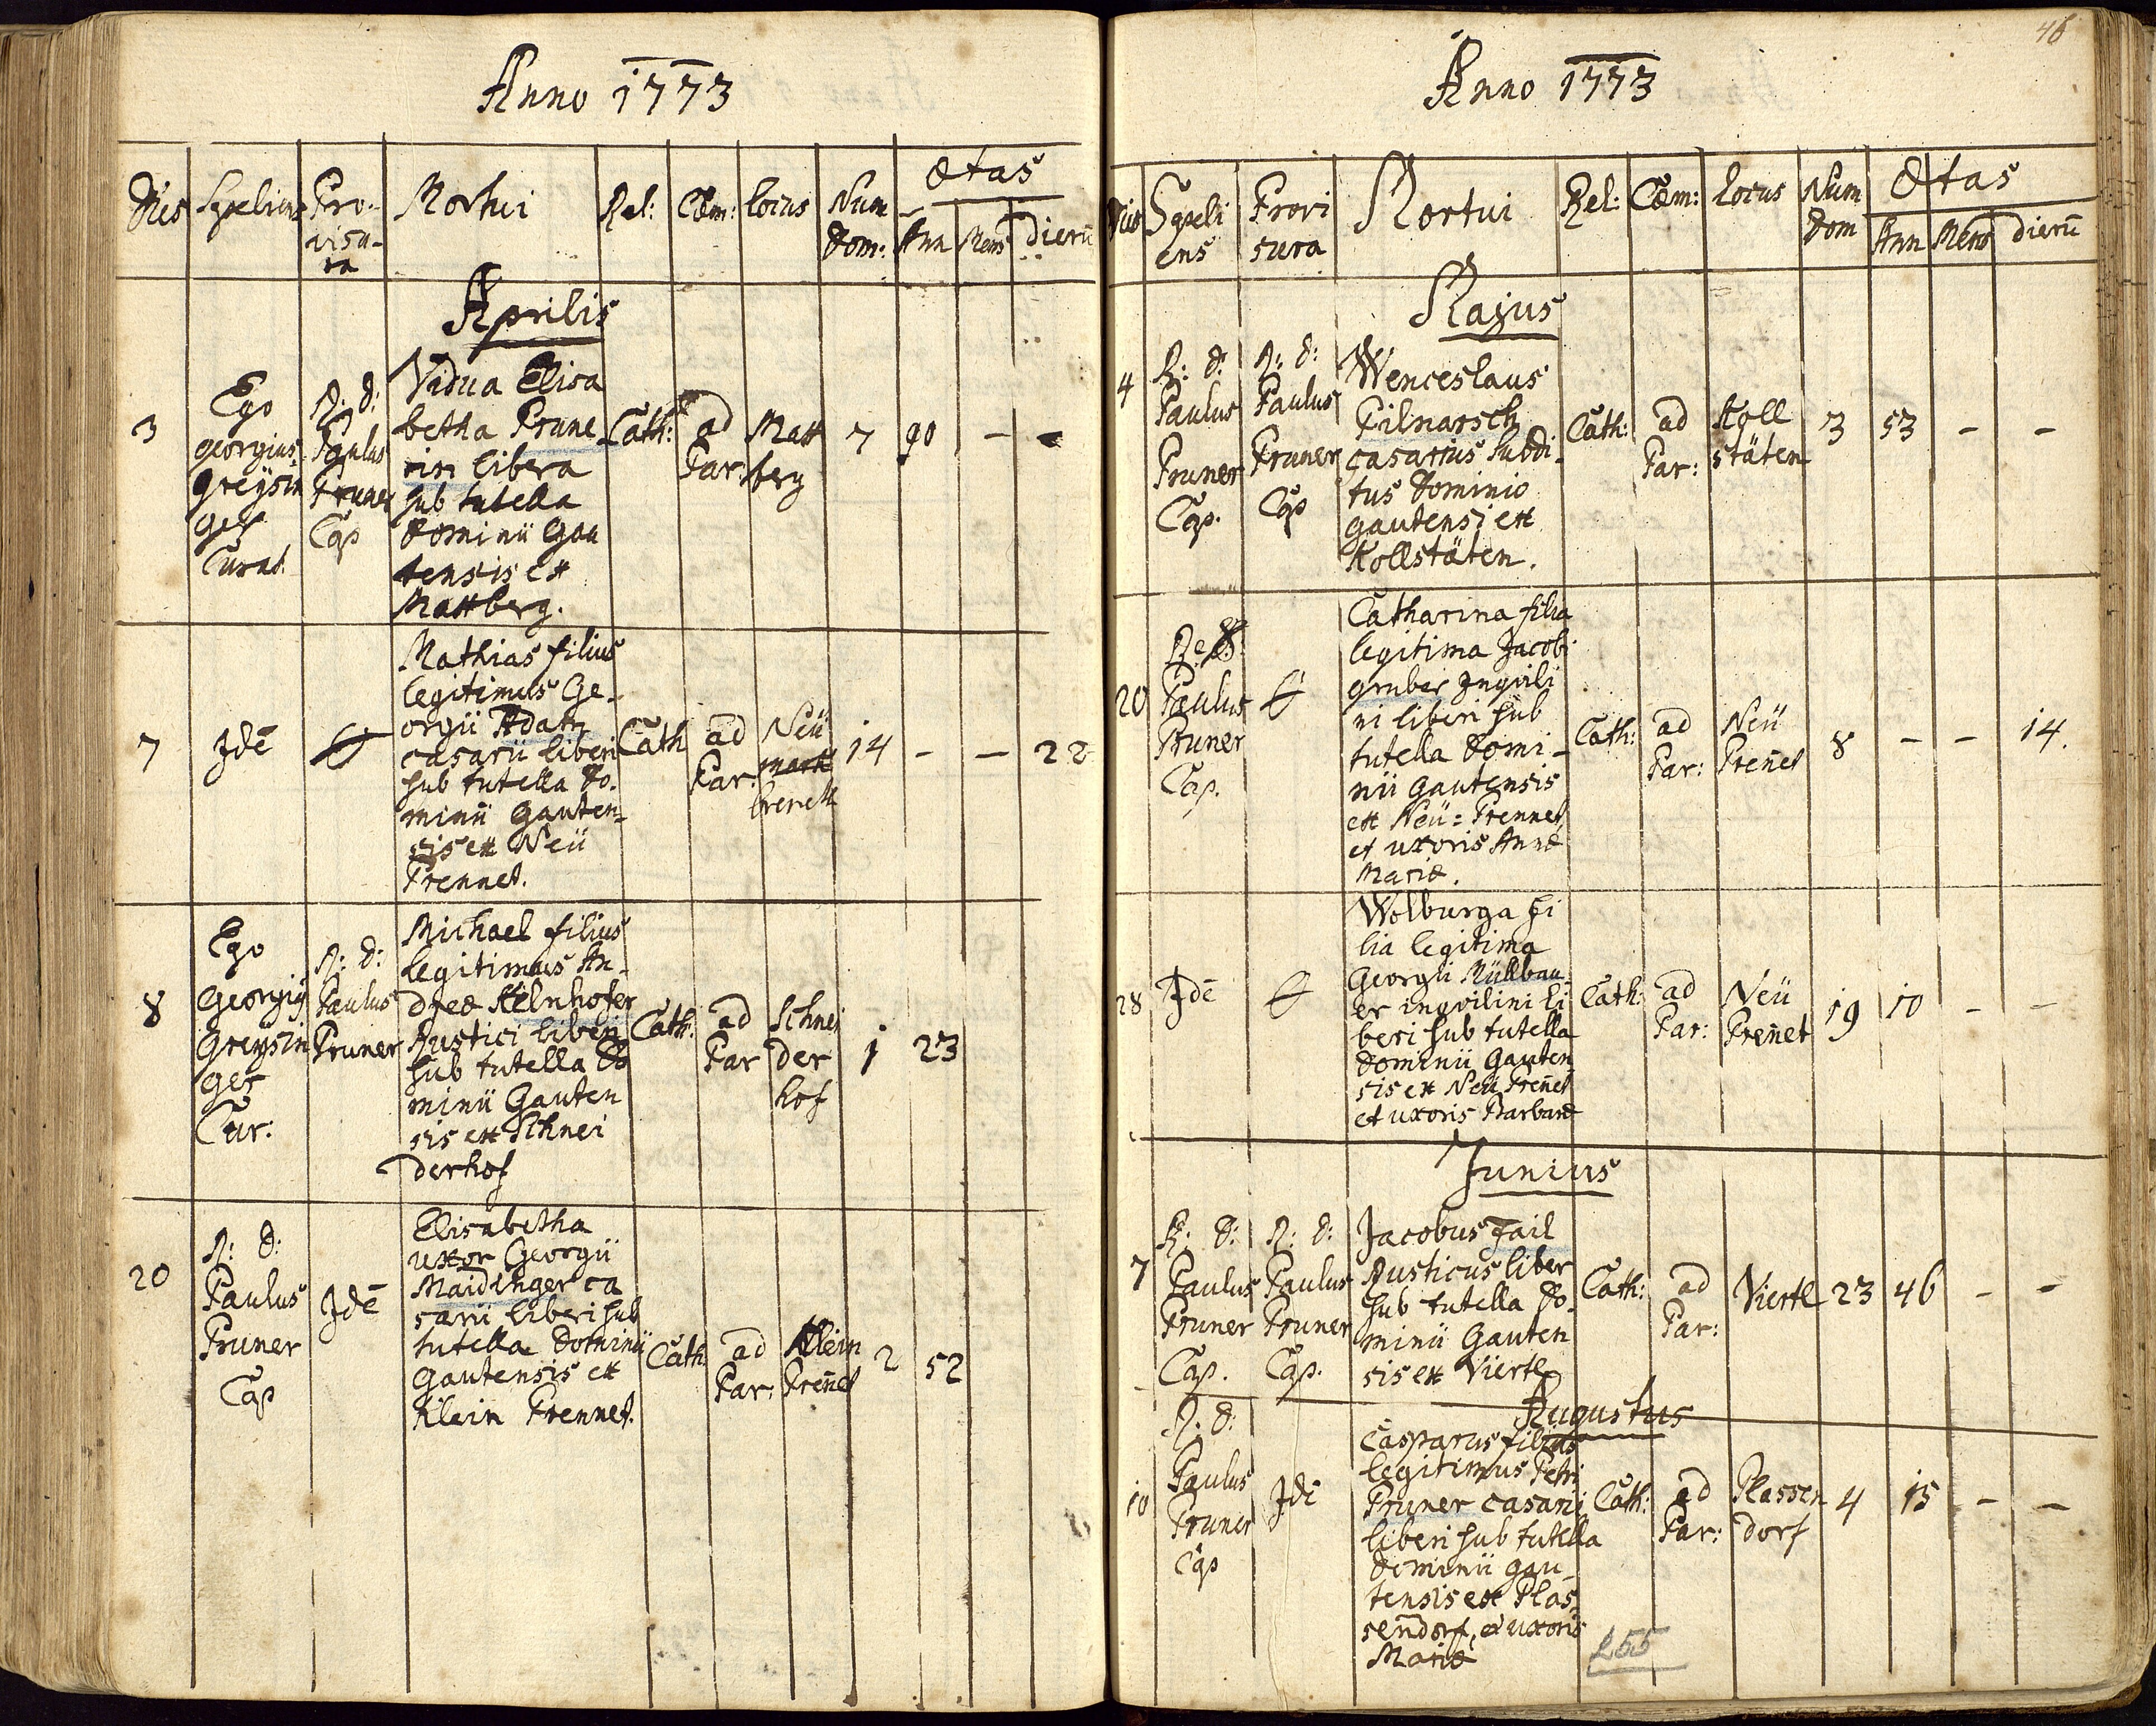 Anno 1773
Dies Sepeliens Pro- Mortui Rel: Cœm: Locus Num Ætas
visu- dom: Ann Mens dierũ
ra
Aprilis
3
Ego
georgius
greysin
ger
Curat.
R: d:
Paulus
Pruner
Cap
Vidua Elisa
betha Prune
rin libera
sub tutella
Dominii Gau
tensis ex
Mattberg.
Cath:
ad
Par:
Matt
berg
7 90 - -
7
Idẽ
Mathias filius
legitimus Ge-
orgii Adam
casarii liberi
sub tutella Do-
minii Gauten-
sis ex Neü
Prennet.
Cath
ad
Par:
Neü
mark
brenett
14 - - 22
8
Ego
Georgiꝰ
Greysin
ger
Cur:
R: d:
Paulus
Pruner
Michael filius
legitimus An-
dreæ Kelnhofer
Rustici liberi
sub tutella Do
minii Gauten
sis ex Schnei
derhof
Cath:
ad
Par
Schnei
der
hof
1 23
20
R: d:
Paulus
Pruner
Cap
Idẽ
Elisabetha
uxor Georgii
Maidinger ca
sarii liberi sub
tutella Dominii
Gautensis ex
Klein Prennet.
Cath
ad
Par:
Klein
Pren̄et
2 52
46
Anno 1773
Dies Sepeli Provi Mortui Rel: Cœm: Locus Num Ætas
ens sura dom Ann Mens dierũ
Majus
4
R: d:
Paulus
Pruner
Cap.
R: d:
Paulus
Pruner
Cap
Wenceslaus
Pilnarsch
casarius subdi-
tus Dominio
gautensi ex
Kollstäten.
Cath:
ad
Par:
Koll
stäten
3 53 - -
20
R: d:
Paulus
Pruner
Cap.
Catharina filia
legitima Jacobi
gruber Inqvili
ni liberi sub
tutella Domi-
nii Gautensis
ex Neü=Prennet
et uxoris Annæ
Mariæ.
Cath:
ad
Par:
Neü
Pren̄et
8 - - 14.
28
Idẽ
Wolburga fi
lia legitima
Georgii Müllbau
er inqvilini li
beri sub tutella
Dominii Gauten
sis ex Neü Pren̄et
et uxoris Barbaræ
Cath:
ad
Par:
Neü
Pren̄et
19 10 - -
Junius
7
R: d:
Paulus
Pruner
Cap.
R: d:
Paulus
Pruner
Cap.
Jacobus Fail
Rusticus liber
sub tutella Do-
minii Gauten
sis ex Viertl
Cath:
ad
Par:
Viertl
23 46 - -
Augustus
10
R: d:
Paulus
Pruner
Cap
Idẽ
Casparus filius
legitimus Petri
Pruner casarii
liberi sub tutella
Dominii gau-
tensis ex Plas-
sendorf, et uxoris
Mariæ
Cath:
ad
Par:
Plassen
dorf
4 15 - -
155